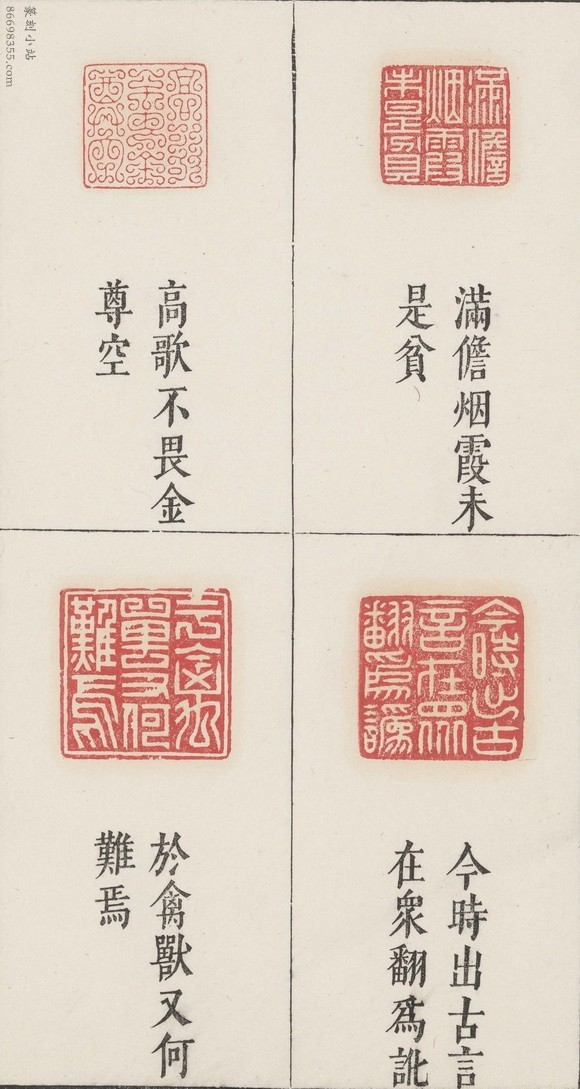 滿儋烟霞未
是貧
高歌不畏金
尊空
今時出古言
在衆翻爲訛
於禽獸又何
難焉
篆刻小站
86698355.com